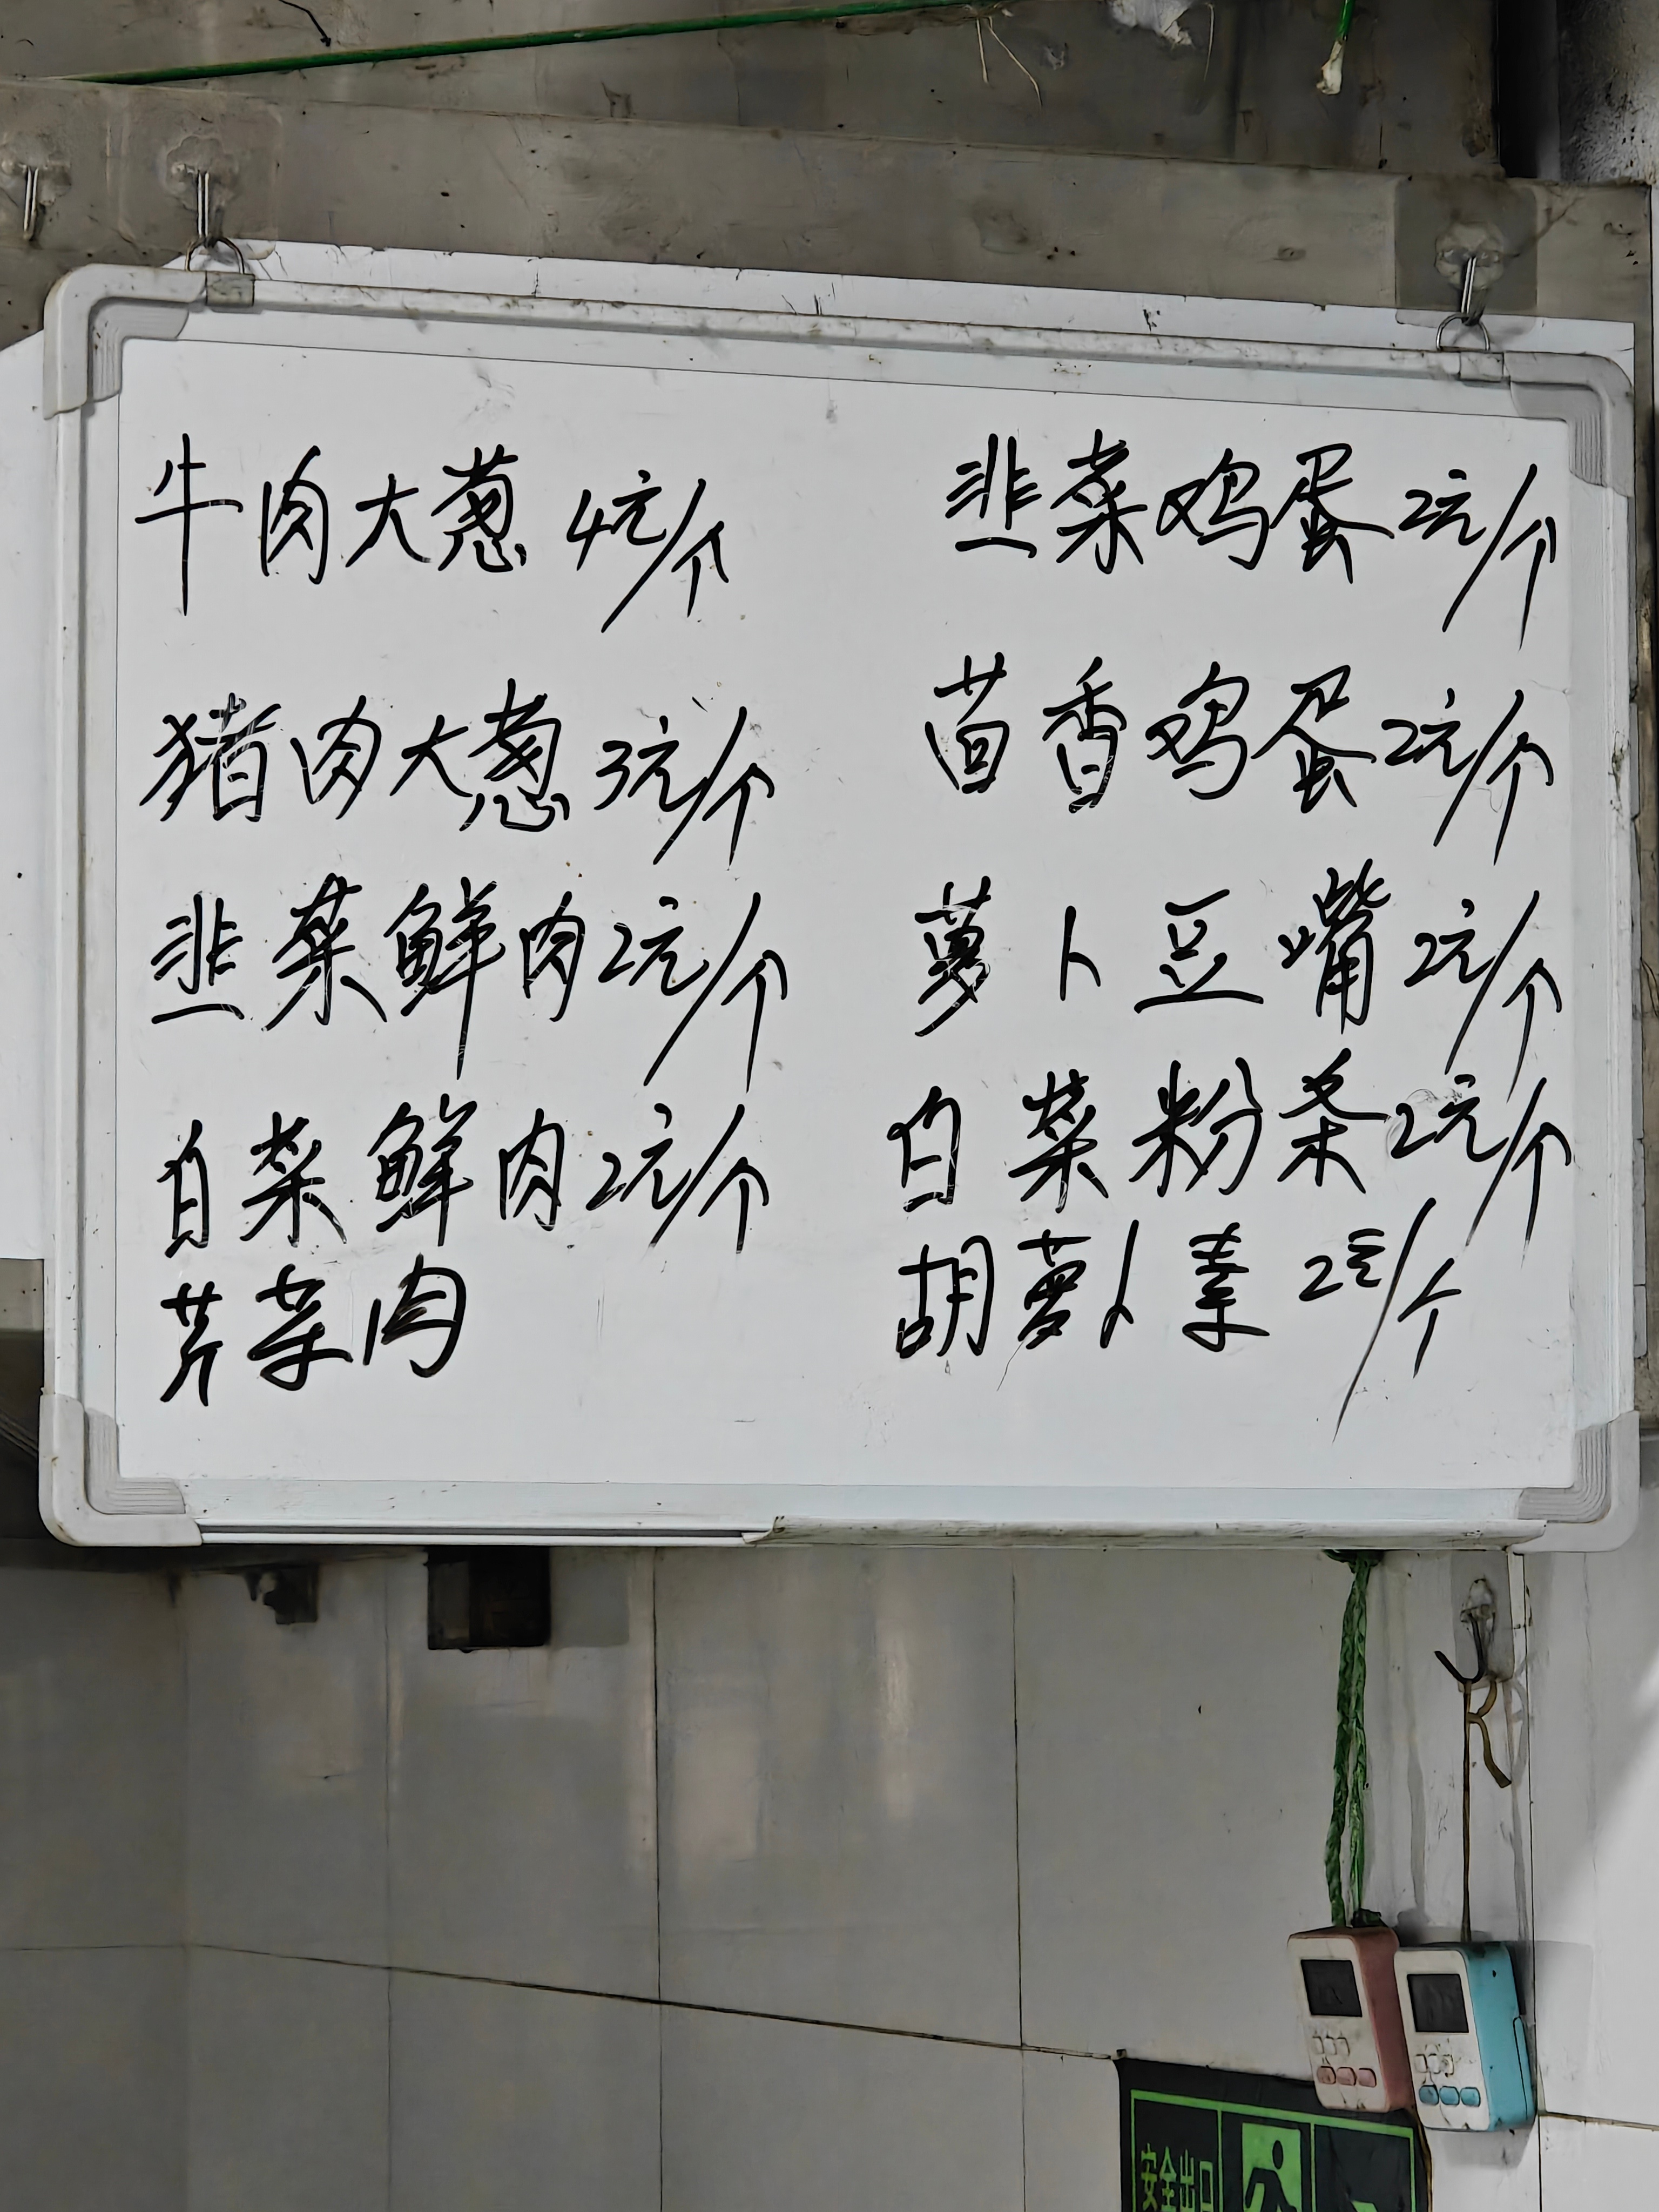 牛肉大葱 4元/个
猪肉大葱 3元/个
韭菜鲜肉 2元/个
白菜鲜肉 2元/个
芹菜肉
韭菜鸡蛋 2元/个
茴香鸡蛋 2元/个
萝卜豆嘴 2元/个
白菜粉条 2元/个
胡萝卜素 2元/个
安全出口